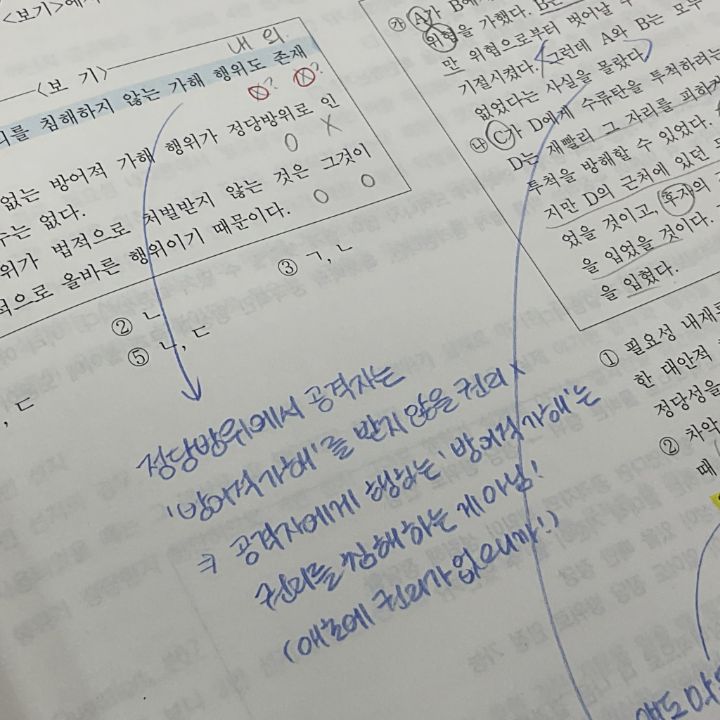 <보기>에
<보 기>
내 외
리를 침해하지 않는 가해 행위도 존재
X? X?
없는 방어적 가해 행위가 정당방위로 인
O X
수는 없다.
위가 법적으로 처벌받지 않는 것은 그것이
적으로 올바른 행위이기 때문이다. O O
③ ㄱ, ㄴ
② ㄴ
⑤ ㄴ, ㄷ
, ㄷ
정당방위에서 공격자는
'방어적가해'를 받지 않을 권리 X
⇒ 공격자에게 행하는 '방어적가해'는
권리를 침해하는 게 아님!
(애초에 권리가 없으니까!)
㉮ A가 B에
위협을 가했다. B는
만 위협으로부터 벗어날 수
기절시켰다. 그런데 A와 B는 모두
없었다는 사실을 몰랐다.
㉯ C가 D에게 수류탄을 투척하려는
D는 재빨리 그 자리를 피하
투척을 방해할 수 있었다.
지만 D의 근처에 있던
었을 것이고, 후자의
을 입었을 것이다.
을 입혔다.
① 필요성 내재
한 대안적
정당성을
② 차악
때